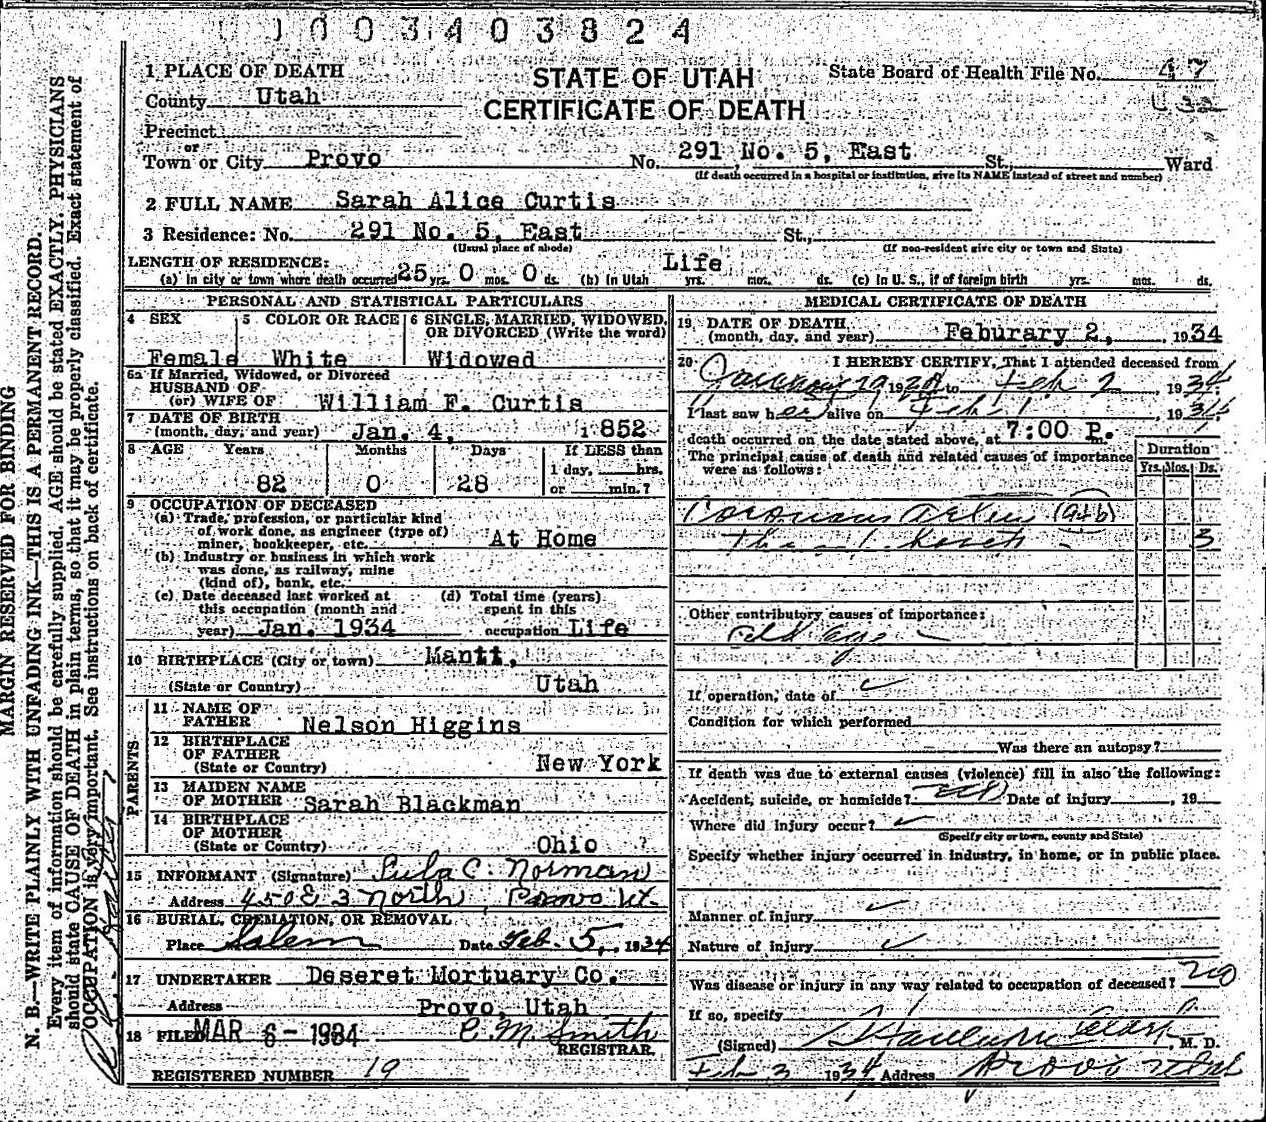 1003403824
1 PLACE OF DEATH
STATE OF UTAH
State Board of Health File No. 47
County Utah
CERTIFICATE OF DEATH
Precinct
or
Town or City Provo No. 291 No. 5, East St., Ward
(If death occurred in a hospital or institution, give its NAME instead of street and number)
2 FULL NAME Sarah Alice Curtis
3 Residence: No. 291 No. 5, East St.,
(Usual place of abode) (If non-resident give city or town and State)
LENGTH OF RESIDENCE: Life
(a) In city or town where death occurred 25 yrs. 0 mos. 0 ds. (b) In Utah yrs. mos. ds. (c) In U. S., if of foreign birth yrs. mos. ds.
PERSONAL AND STATISTICAL PARTICULARS
4 SEX 5 COLOR OR RACE 6 SINGLE, MARRIED, WIDOWED,
OR DIVORCED (Write the word)
Female White Widowed
6a If Married, Widowed, or Divorced
HUSBAND OF
(or) WIFE OF William F. Curtis
7 DATE OF BIRTH
(month, day, and year) Jan. 4, 1852
8 AGE Years Months Days If LESS than
1 day, hrs.
82 0 28 or min.?
9 OCCUPATION OF DECEASED
(a) Trade, profession, or particular kind
of work done, as engineer (type of)
miner, bookkeeper, etc. At Home
(b) Industry or business in which work
was done, as railway, mine
(kind of), bank, etc.
(c) Date deceased last worked at (d) Total time (years)
this occupation (month and spent in this
year) Jan. 1934 occupation Life
10 BIRTHPLACE (City or town) Manti,
(State or Country) Utah
PARENTS
11 NAME OF
FATHER Nelson Higgins
12 BIRTHPLACE
OF FATHER
(State or Country) New York
13 MAIDEN NAME
OF MOTHER Sarah Blackman
14 BIRTHPLACE
OF MOTHER
(State or Country) Ohio ?
15 INFORMANT (Signature) C. Norman
Address 450 E 3 North, Provo Ut.
16 BURIAL, CREMATION, OR REMOVAL
Place Salem Date Feb. 5, 1934
17 UNDERTAKER Deseret Mortuary Co.
Address Provo, Utah
18 FILED MAR 6 - 1934 C. M. Smith
REGISTRAR.
REGISTERED NUMBER 19
MEDICAL CERTIFICATE OF DEATH
19 DATE OF DEATH
(month, day, and year) Feburary 2, 1934
20 I HEREBY CERTIFY, That I attended deceased from
January 29 to Feb 2, 1934
I last saw her alive on Feb 1, 1934
death occurred on the date stated above, at 7:00 P. m.
The principal cause of death and related causes of importance
were as follows:
Duration
Yrs. Mos. Ds.
Coronary
3
Other contributory causes of importance:
Old age
If operation, date of
Condition for which performed
Was there an autopsy?
If death was due to external causes (violence) fill in also the following:
Accident, suicide, or homicide? Date of injury , 19
Where did injury occur?
(Specify city or town, county and State)
Specify whether injury occurred in industry, in home, or in public place.
Manner of injury
Nature of injury
Was disease or injury in any way related to occupation of deceased? no
If so, specify
(Signed) M. D.
Feb 3 1934 Address Provo Utah
MARGIN RESERVED FOR BINDING
N. B.—WRITE PLAINLY WITH UNFADING INK—THIS IS A PERMANENT RECORD.
Every item of information should be carefully supplied. AGE should be stated EXACTLY. PHYSICIANS
should state CAUSE OF DEATH in plain terms, so that it may be properly classified. Exact statement of
OCCUPATION is very important. See instructions on back of certificate.